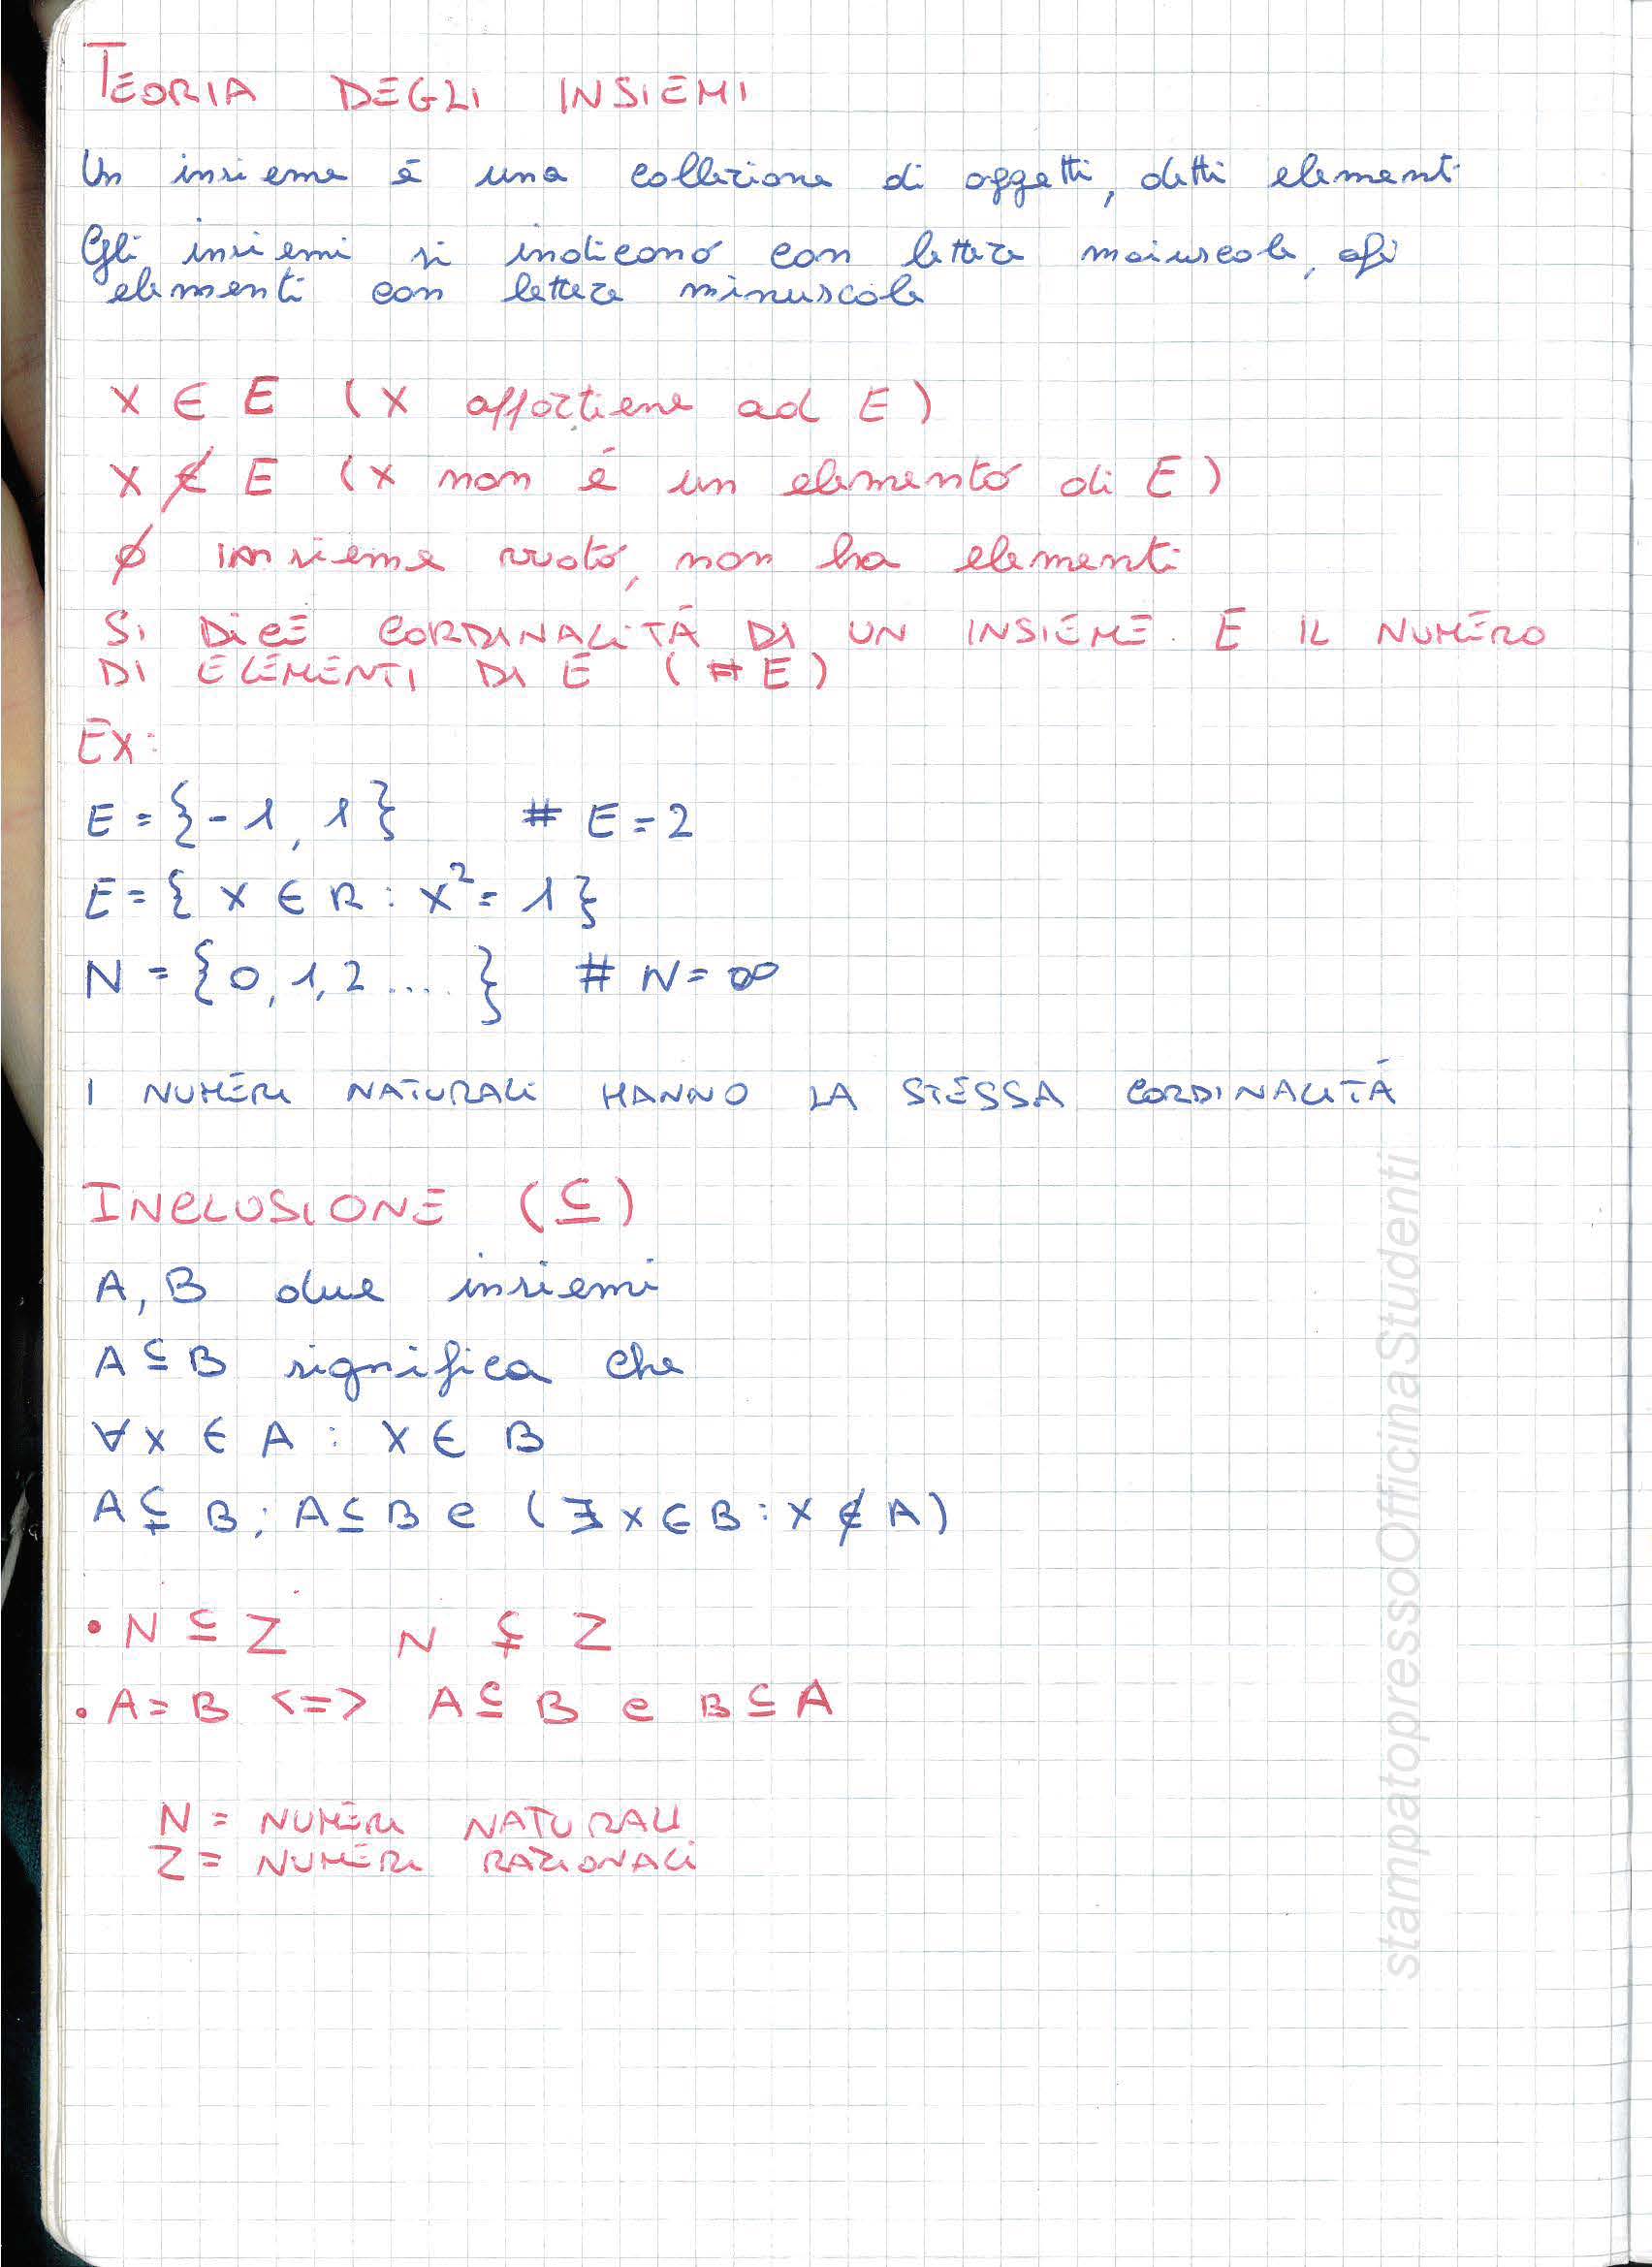 TEORIA DEGLI INSIEMI
Un insieme é una collezione di oggetti, detti elementi
Gli insiemi si indicono con lettere maiuscole, gli
elementi con lettere minuscole
X ∈ E (X appartiene ad E)
X ∉ E (X non é un elemento di E)
∅ insieme vuoto, non ha elementi
Si DICE CORDINALITÁ DI UN INSIEME E IL NUMERO
DI ELEMENTI DI E (# E)
EX:
E = {-1, 1} # E = 2
E = { X ∈ R : X² = 1 }
N = {0, 1, 2 ....} # N = ∞
I NUMERI NATURALI HANNO LA STESSA CORDINALITÁ
INCLUSIONE (⊆)
A, B due insiemi
A ⊆ B significa che
∀x ∈ A : X ∈ B
A ⊊ B ; A ⊆ B e (∃ x ∈ B : X ∉ A)
• N ⊆ Z N ⊊ Z
• A = B <=> A ⊆ B e B ⊆ A
N = NUMERI NATURALI
Z = NUMERI RAZIONALI
stampatopressoOfficinaStudenti